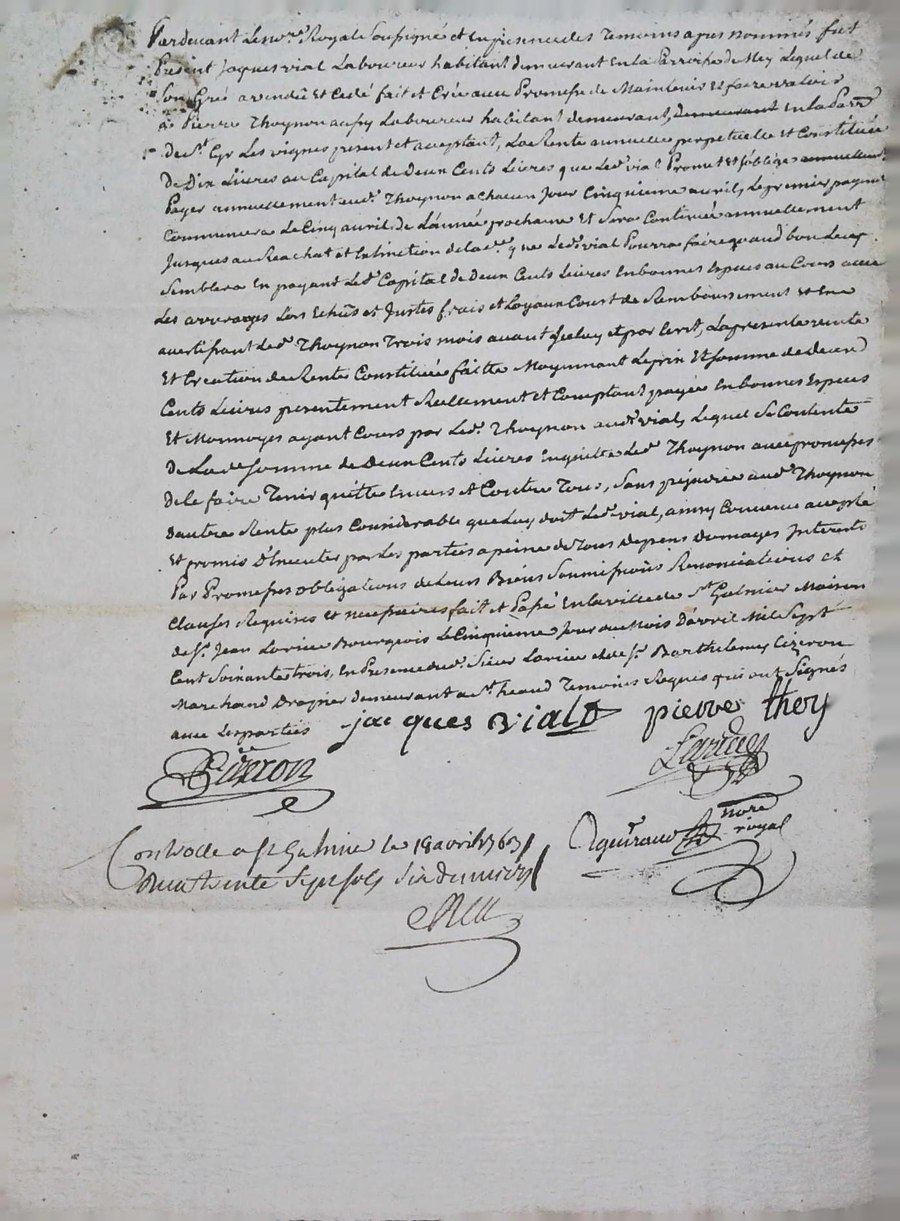 Pardevant Le no.re Royal Soussigné et en presence des Temoins apres nommés fut
Present Jaques vial Laboureur habitant demeurant En la Parroisse de Lequel de
Son Gré a vendu Et Cedé fait et Créé avec Promesse de Maintenir Et faire valoir
a Pierre Thoynon aussy Laboureur habitant demeurant, demeurant En la Parr.
de S.t Cyr Les vignes present et acceptant, La Rente annuelle perpetuelle et Constituée
De Dix Livres au Capital de Deux Cents Livres que Led. vial Promet et s'oblige annuellem.t
Payer annuellement aud. Thoynon a chacun Jour Cinquieme avril, Le premier payem.t
Commencera Le Cinq avril de L'année prochaine Et Sera Continué annuellement
Jusques au Reachat et Extinction de la d. que Led. vial Pourra faire quand bon Luy
Semblera En payant Led. Capital de Deux Cents Livres En bonnes Especes au Cours avec
Les arrerages Lors Echus et Justes frais et Loyaux Cout de Remboursement Et En
avertissant Led. Thoynon Trois mois avant Iceluy et par Ecrit, La presente vente
Et Creation de Rente Constituée faitte Moyennant Le prix Et Somme de deux
Cents Livres presentement Reellement et Comptant payée En bonnes Especes
Et Monnoyes ayant Cours par Led. Thoynon aud. vial, Lequel Se Contente
De La de Somme de Deux Cents Livres En quitte Led. Thoynon avec promesses
de le faire Tenir quitte Envers et Contre Tous, Sans prejudice aud. Thoynon
Dautre Rente plus Considerable que Luy doit Led. vial, ainsy Convenu accepté
Et promis D'Executer par Les parties a peine de Tous Depens Domages Interets
Par Promesses obligations de Leurs Biens Soumissions Renonciations et
Clauses Requises et necessaires fait et Passé En la ville de S.t Galmier Maison
de S.r Jean Bourgeois Le Cinquieme Jour du Mois D'avril Mil Sept
Cent Soixante trois, En Presence dud. Sieur et de S.r Barthelemy Cizeron
Marchand Drapier demeurant a S.t heand Temoins Requis qui ont Signés
avec Les parties jacques vial pierre thoy
Cizeron
not.re
royal
Controlle a St Galmier le 19 avril 1763
Recu trente Sept sols Six deniers